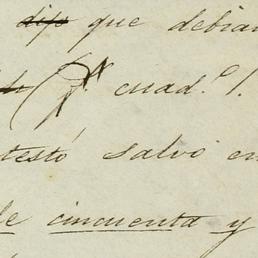 dijo que debian
cuad.º 1.
testó salvo en
de cincuenta y